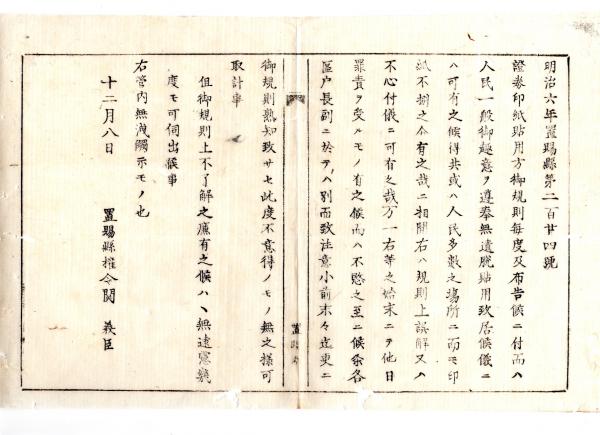 明治六年置賜縣第二百廿四號
證券印紙貼用方御規則毎度及布告候ニ付而ハ
人民一般御趣意ヲ遵奉無遺脱貼用致居候儀ニ
ハ可有之候得共或ハ人民多數之場所ニ而モ印
紙不捌之介有之哉ニ相聞右ハ規則上誤解又ハ
不心付儀ニ可有之哉万一右等之始末ニテ他日
罪責ヲ受ルモノ有之候而ハ不愍之至ニ候条各
區戸長副ニ於テハ別而致注意小前末々迄更ニ
御規則熟知致サセ此度不意得ノモノ無之様可
取計事
但御規則上不了解之廉有之候ハヽ無遠慮幾
度モ可伺出候事
右管内無洩觸示モノ也
十二月八日
置賜縣權令関 義臣
置賜